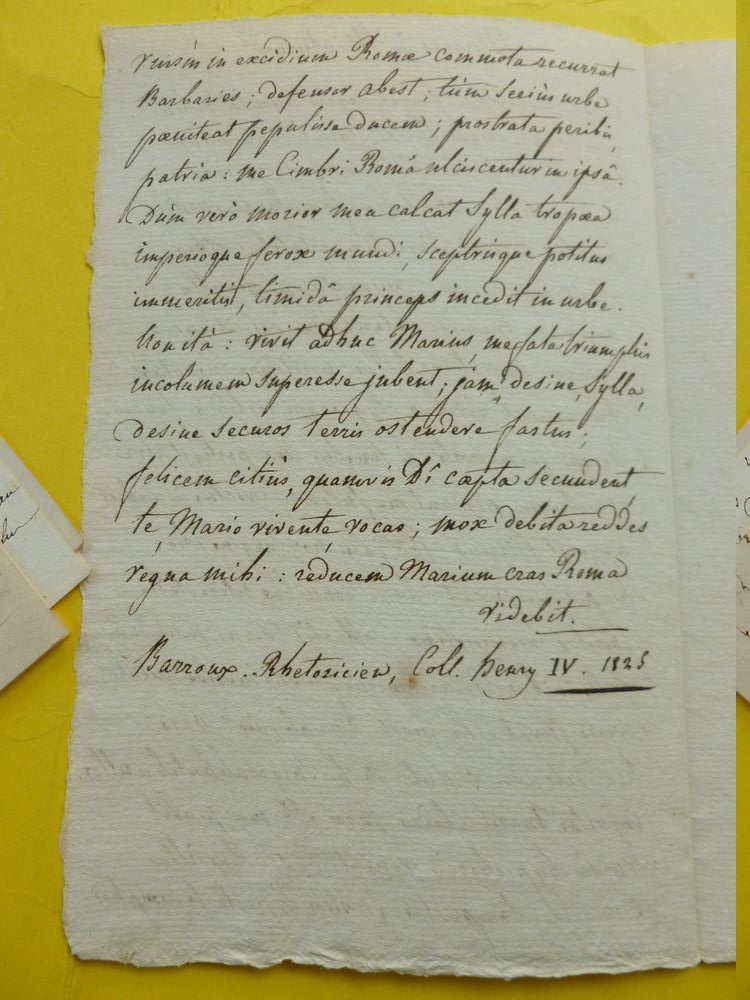 rursùs in excidium Romæ commota recurrat
Barbaries; defensor abest; tùm seriùs urbe
pæniteat pepulisse ducem; prostrata peribis,
patria: me Cimbri Româ ulciscentur in ipsâ.
Dùm verò morior mea calcat Sylla tropæa
imperioque ferox mundi, sceptrisque potitus
immeritis, timidâ princeps incedit in urbe.
Non ità: vivit adhuc Marius, me fata triumphis
incolumem superesse jubent; jam desine, Sylla,
desine securos terris ostendere fastus;
felicem citiùs, quamvis Dî cæpta secundent,
te, Mario vivente, vocas; mox debita reddes
regna mihi: reducem Marium cras Roma
videbit.
Barroux. Rhetoricien, Coll. henry IV. 1825